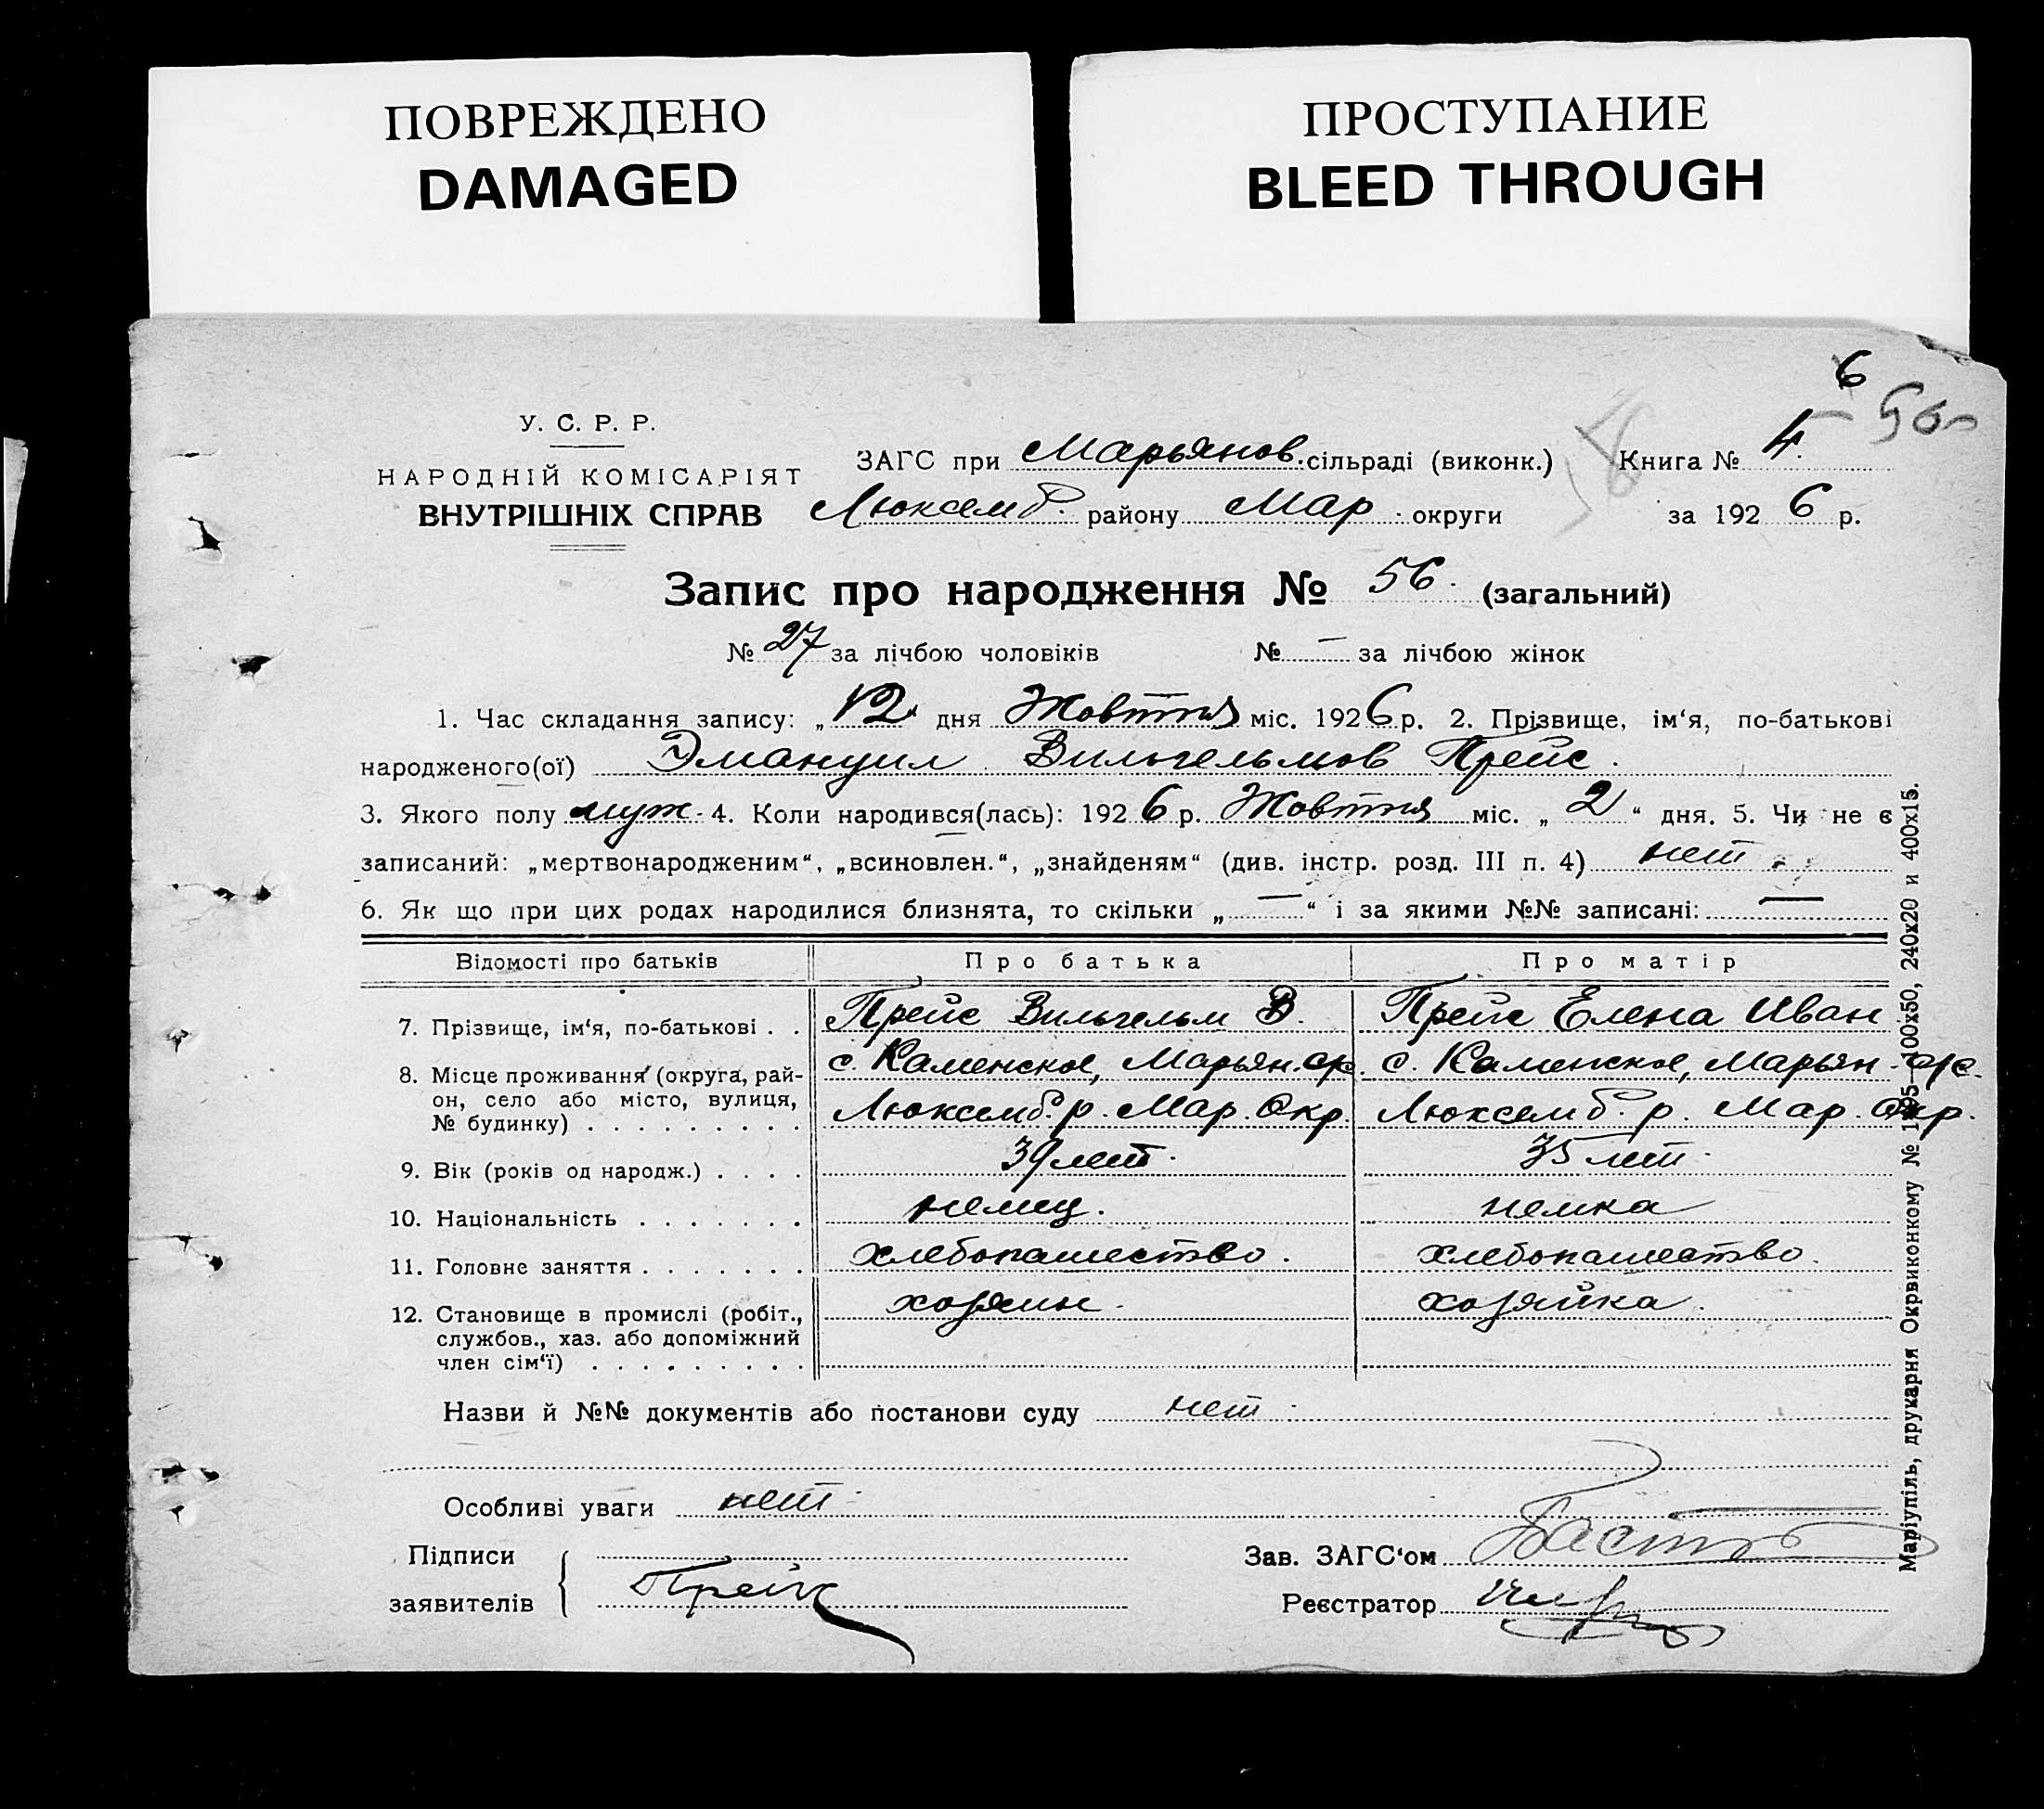 ПОВРЕЖДЕНО
DAMAGED
ПРОСТУПАНИЕ
BLEED THROUGH
6
У. С. Р. Р.
НАРОДНІЙ КОМІСАРІЯТ
ВНУТРІШНІХ СПРАВ
ЗАГС при Марьянов. сільраді (виконк.) Книга № 4.
Люксемб. району Мар. округи за 1926 р.
Запис про народження № 56. (загальний)
№ 27 за лічбою чоловіків № — за лічбою жінок
1. Час складання запису: „12 дня Жовтня міс. 1926 р. 2. Прізвище, ім‘я, по-батькові
народженого(ої) Эмануил Вильгельмов Прейс.
3. Якого полу муж. 4. Коли народився(лась): 1926 р. Жовтня міс. „2“ дня. 5. Чи не є
записаний: „мертвонародженим“, „всиновлен.“, „знайденям“ (див. інстр. розд. III п. 4) нет
6. Як що при цих родах народилися близнята, то скільки „—“ і за якими №№ записані: —
Відомості про батьків Про батька Про матір
7. Прізвище, ім‘я, по-батькові . . Прейс Вильгельм В. Прейс Елена Иван
8. Місце проживання (округа, рай-
он, село або місто, вулиця,
№ будинку) . . . . . . . . .
с. Каменское, Марьян. ср. с. Каменское, Марьян. срс.
Люксемб. р. Мар. Окр. Люксемб. р. Мар. Окр.
9. Вік (років од народж.) . . . . 39 лет. 35 лет.
10. Національність . . . . . . . немец. немка
11. Головне заняття . . . . . . . хлебопашество. хлебопашество.
12. Становище в промислі (робіт.,
службов., хаз. або допоміжний
член сім‘ї) . . . . . . . . .
хозяин. хозяйка.
Назви й №№ документів або постанови суду нет
Особливі уваги нет
Підписи
заявителів Прейс
Зав. ЗАГС‘ом
Реєстратор
Маріупіль, друкарня Окрвиконкому № 1195—100x50, 240x20 и 400x15.